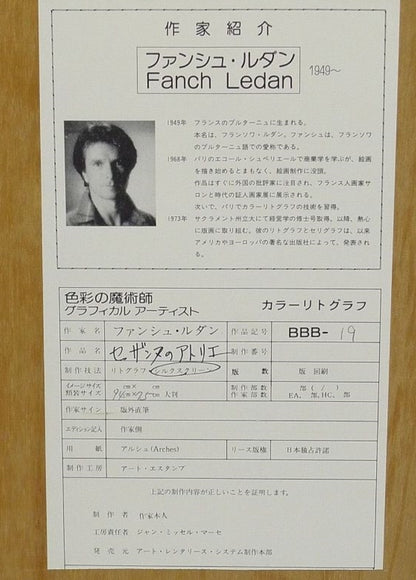 作家紹介
ファンシュ・ルダン
Fanch Ledan
1949～
1949年 フランスのブルターニュに生まれる。
本名は、フランソワ・ルダン。ファンシュは、フランソワ
のブルターニュ語での愛称である。
1968年 パリのエコール・シュペリエールで商業学を学ぶが、絵画
を描き始めるとまもなく、絵画制作に没頭。
作品はすぐに外国の批評家に注目され、フランス人画家サ
ロンと時代の証人画家展に展示される。
次いで、パリでカラーリトグラフの技術を習得。
1973年 サクラメント州立大にて経営学の修士号取得。以降、熱心
に版画に取り組む。彼のリトグラフとセリグラフは、以来
アメリカやヨーロッパの著名な出版社によって、発表され
る。
色彩の魔術師
グラフィカル アーティスト
カラーリトグラフ
作家名 ファンシュ・ルダン 作品記号 BBB-19
作品名 セザンヌのアトリエ 制作番号
制作技法 リトグラフ シルクスクリーン 版数 版 回刷
イメージサイズ cm× cm 制作部数 部 ( / )
額装サイズ cm× cm 大判 作家部数 EA. 部、HC. 部
作家サイン 版外直筆
エディション記入 作家側
用紙 アルシュ(Arches) リース版権 日本独占許諾
制作工房 アート・エスタンプ
上記の制作内容が正しいことを証明します。
制作者 作家本人
工房責任者 ジャン・ミッセル・マーセ
発売元 アート・レンタリース・システム制作本部